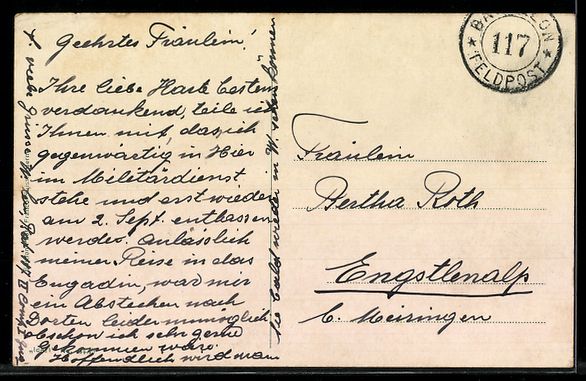 Geehrtes Fräulein!
Ihre liebe Karte bestens
verdankend, teile ich
Ihnen mit, dass ich
gegenwärtig in hier
im Militärdienst
stehe und erst wieder
am 2. Sept. entlassen
werde. Anlässlich
meiner Reise in das
Engadin, war mir
ein Abstecher nach
Dorten leider unmöglich
obschon ich sehr gerne
gekommen wäre.
Hoffendlich wird man
Sie bald wieder in W. sehen können
117
FELDPOST
Fräulein
Bertha Roth
Engstlenalp
b. Meiringen